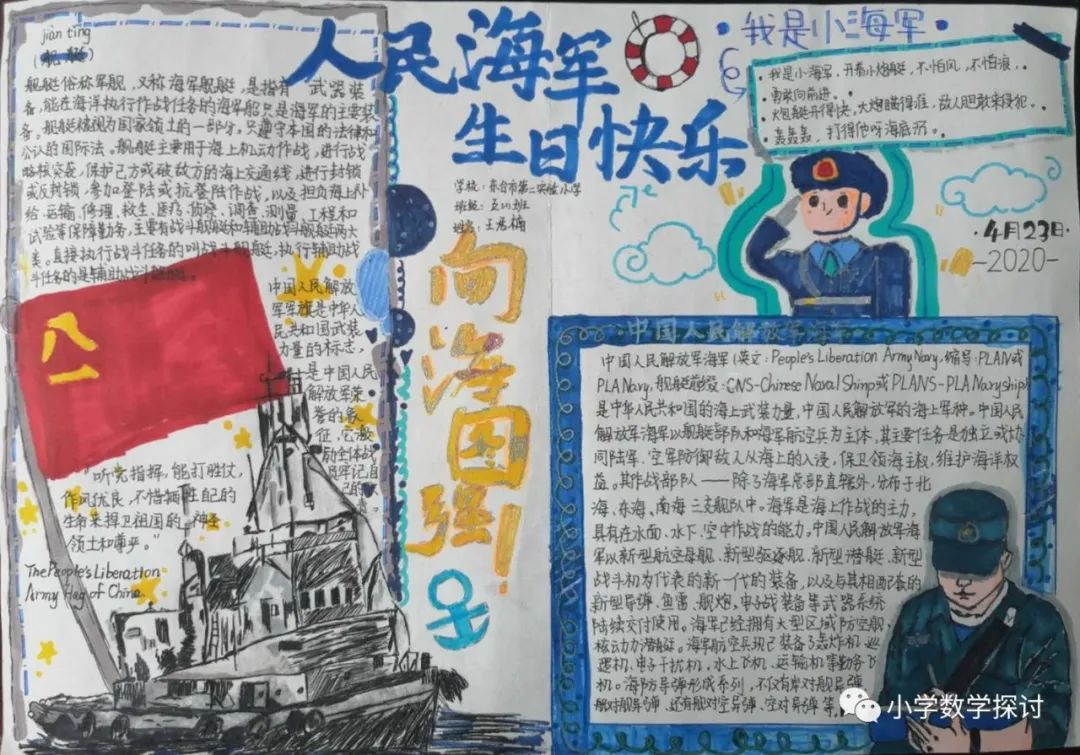 jian ting
(舰 艇)
舰艇俗称军舰，又称海军舰艇，是指有武器装
备，能在海洋执行作战任务的海军船只是海军的主要装
备。舰艇被视为国家领土的一部分，只遵守本国的法律和
公认的国际法。舰艇主要用于海上机动作战，进行战
略核突袭，保护己方或破敌方的海上交通线，进行封锁
或反封锁，参加登陆或抗登陆作战，以及担负海上补
给、运输、修理、救生、医疗、侦察、调查、测量、工程和
试验等保障勤务，主要有战斗舰艇和辅助战斗舰艇两大
类。直接执行战斗任务的叫战斗舰艇，执行辅助战
斗任务的是辅助战斗舰艇。
中国人民解放
军军旗是中华人
民共和国武装
力量的标志，
是中国人民
解放军荣
誉的象
征，它激
励全体战
员牢记自
己的
八一
"听党指挥，能打胜仗，
作风优良，不惜牺牲自己的
生命来捍卫祖国的神圣
领土和尊严。"
The People's Liberation
Army Flag of China.
人民海军
生日快乐
学校：东台市第二实验小学
班级：五(4)班
姓名：王君楠
向海图强！
我是小海军
我是小海军，开着小炮艇，不怕风，不怕浪，
勇敢向前进。
炮艇开得快，大炮瞄得准，敌人胆敢来侵犯。
轰轰轰，打得他呀海底沉。
4月23日
-2020-
中国人民解放军海军
中国人民解放军海军(英文:People's Liberation Army Navy,缩写:PLAN或
PLA Navy,舰艇前缀:CNS-Chinese Naval Shinp或PLANS-PLA Navy ship)
是中华人民共和国的海上武装力量，中国人民解放军的海上军种。中国人民
解放军海军以舰艇部队和海军航空兵为主体，其主要任务是独立或协
同陆军、空军防御敌人从海上的入侵，保卫领海主权，维护海洋权
益。其作战部队——除了海军总部直辖外，分布于北
海、东海、南海三支舰队中。海军是海上作战的主力，
具有在水面、水下、空中作战的能力。中国人民解放军海
军以新型航空母舰、新型驱逐舰、新型潜艇、新型
战斗机为代表的新一代的装备，以及与其相配套的
新型导弹、鱼雷、舰炮、电子战装备等武器系统
陆续交付使用。海军已经拥有大型区域防空舰，
核动力潜艇。海军航空兵现已装备了轰炸机、巡
逻机、电子干扰机、水上飞机、运输机等勤务飞
机。海防导弹形成系列，不仅有岸对舰导弹、
舰对舰导弹，还有舰对空导弹、空对舰导弹等。
小学数学探讨